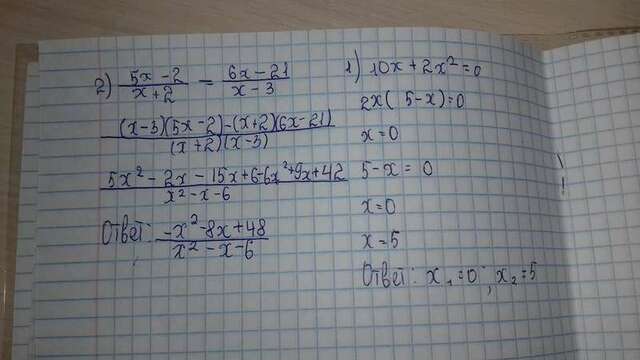 2) (5x - 2)/(x + 2) = (6x - 21)/(x - 3)
((x-3)(5x-2)-(x+2)(6x-21))/((x+2)(x-3))
(5x² - 2x - 15x + 6 - 6x² + 9x + 42)/(x² - x - 6)
Ответ: (-x² - 8x + 48)/(x² - x - 6)
1) 10x + 2x² = 0
2x( 5 - x) = 0
x = 0
5 - x = 0
x = 0
x = 5
Ответ: x₁ = 0 ; x₂ = 5